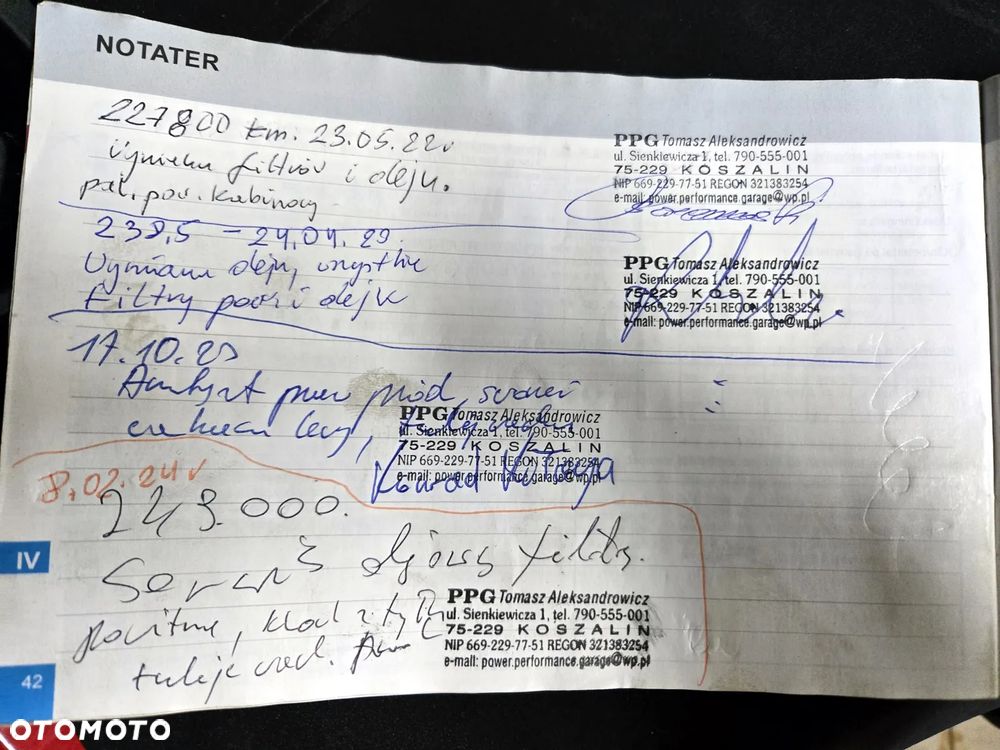 NOTATER
227800 km. 23.05.22r
Wymiana filtrów i oleju.
pal, pow. kabinowy
PPG Tomasz Aleksandrowicz
ul. Sienkiewicza 1, tel. 790-555-001
75-229 KOSZALIN
NIP 669-229-77-51 REGON 321383254
e-mail: power.performance.garage@wp.pl
238,5 - 24.04.23.
Wymiana oleju, wszystkie
Filtry pow i olejk
PPG Tomasz Aleksandrowicz
ul. Sienkiewicza 1, tel. 790-555-001
75-229 KOSZALIN
NIP 669-229-77-51 REGON 321383254
e-mail: power.performance.garage@wp.pl
17.10.23
Amortyzat przód
lewy,
PPG Tomasz Aleksandrowicz
ul. Sienkiewicza 1, tel. 790-555-001
75-229 KOSZALIN
NIP 669-229-77-51 REGON 321383254
e-mail: power.performance.garage@wp.pl
Konrad
8.02.24r
243.000.
Serwis olejowy filtry.
IV
tył
tuleje
PPG Tomasz Aleksandrowicz
ul. Sienkiewicza 1, tel. 790-555-001
75-229 KOSZALIN
NIP 669-229-77-51 REGON 321383254
e-mail: power.performance.garage@wp.pl
42
OTOMOTO